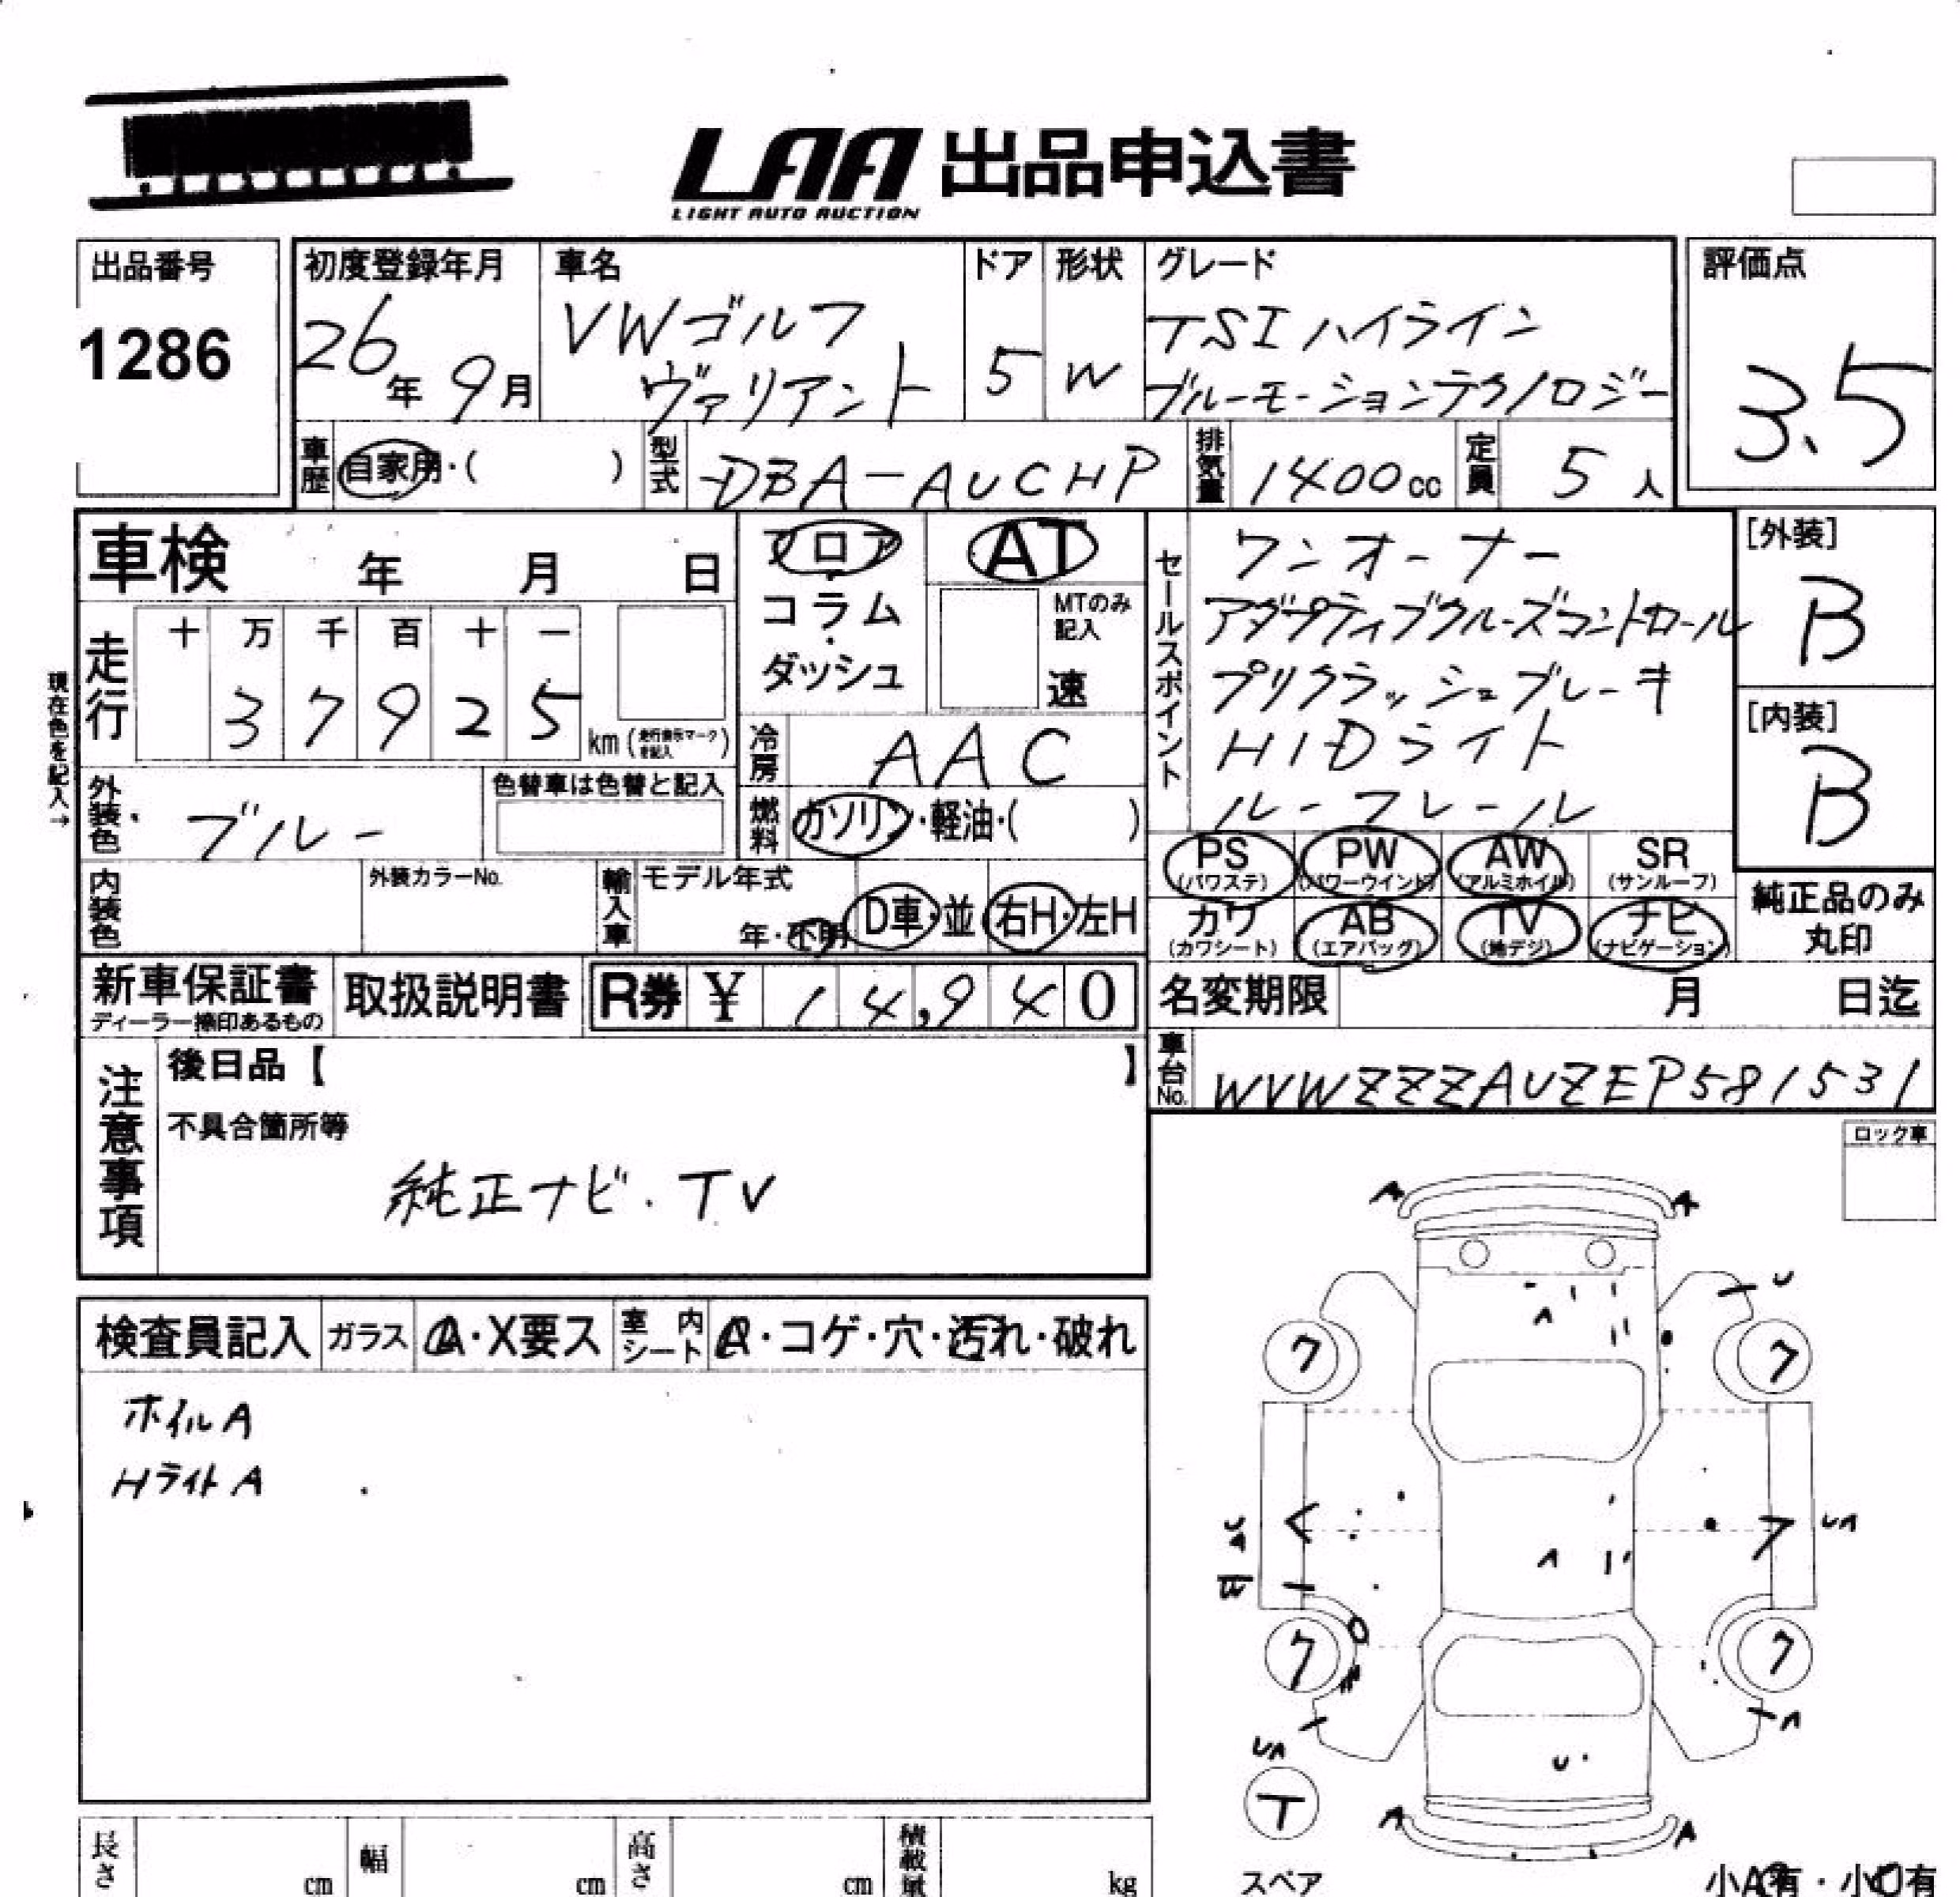 LAA 出品申込書
LIGHT AUTO AUCTION
出品番号
1286
初度登録年月
26年 9月
車名
VWゴルフ
ヴァリアント
ドア
5
形状
W
グレード
TSIハイライン
ブルーモーションテクノロジー
評価点
3.5
車歴 自家用・( )
型式 DBA-AUCHP
排気量 1400cc
定員 5人
車検 年 月 日
走行 十 万 千 百 十 一
3 7 9 2 5
km(走行表示マークを記入)
現在色を記入→
外装色 ブルー
色替車は色替と記入
内装色
外装カラーNo.
フロア・
コラム・
ダッシュ
AT
MTのみ記入
速
冷房 AAC
燃料 ガソリン・軽油・( )
輸入車 モデル年式
年・不明
D車・並
右H・左H
セールスポイント
ワンオーナー
アダプティブクルーズコントロール
プリクラッシュブレーキ
HIDライト
ルーフレール
[外装]
B
[内装]
B
PS (パワステ)
PW (パワーウインド)
AW (アルミホイル)
SR (サンルーフ)
カワ (カワシート)
AB (エアバッグ)
TV (地デジ)
ナビ (ナビゲーション)
純正品のみ
丸印
新車保証書
ディーラー捺印あるもの
取扱説明書
R券 ¥ 14,940
名変期限 月 日迄
車台No. WVWZZZAUZEP581531
注意事項
後日品【 】
不具合箇所等
純正ナビ.TV
ロック車
検査員記入
ガラス A・X要ス
室内シート A・コゲ・穴・汚れ・破れ
ホイルA
HライトA
A A
U
7 7
UA
W
7 7
A
UA
U
T
A A
スペア
小A有・小U有
長さ cm
幅 cm
高さ cm
積載量 kg